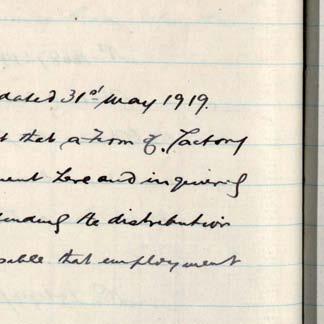 dated 31st May 1919.
that a Firm of Factory
ment here and inquiring
ending the distribution
sible that employment